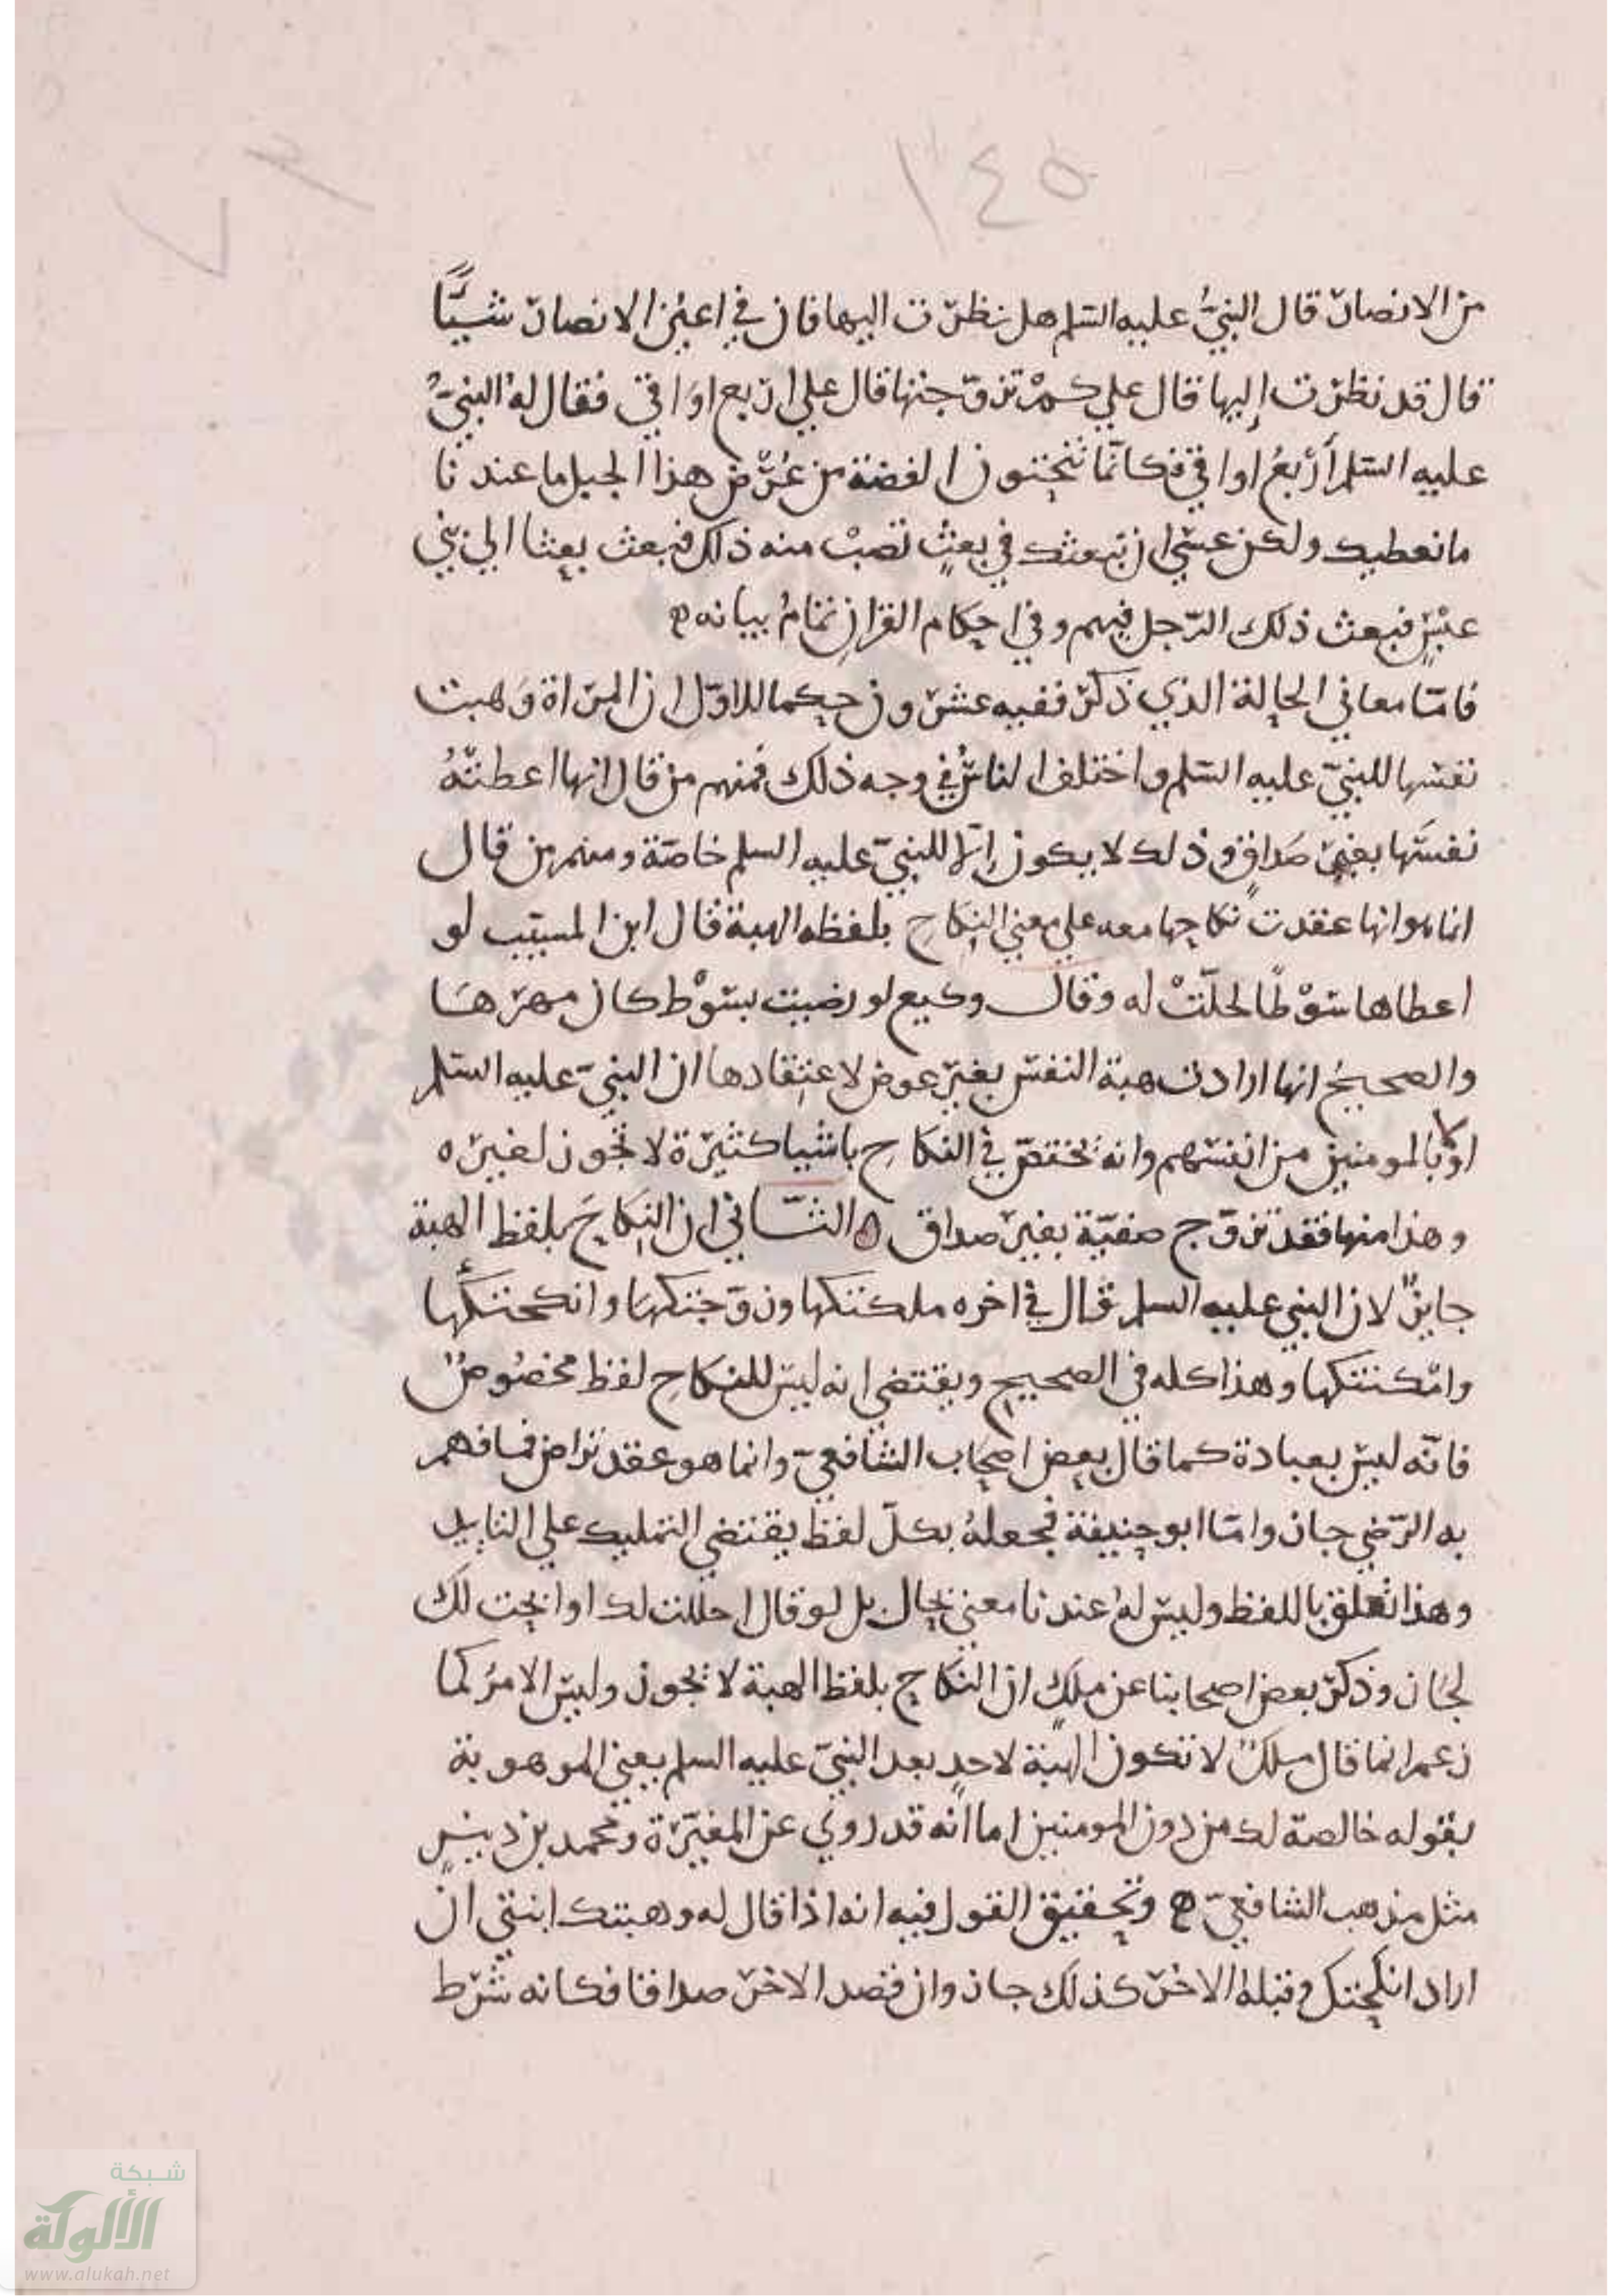 ١٤٥
من الانصار قال النبيُّ عليه السلم هل نظرت اليها فان في اعين الانصار شيًّا
قال قد نظرت إليها قال علي كمْ تزوّجتها قال علي اربع اواقي فقال لهُ النبيُّ
عليه السلم أرْبعُ اواقي فكانّما تنحتون الفضة من عُرْض هذا الجبل ما عندنا
ما نعطيك ولكن عسَي ان نبعثك في بعثٍ تصبْ منه ذلك فبعث بعثا الي بني
عبْسٍ فبعث ذلك الرّجل فيهم وفي احكام القرانِ تمامُ بيانه
فامّا معاني الحالة الذي ذكر ففيه عشرون حكما الاوّل ان المراة وَهبت
نفسها للنبيّ عليه السلم واختلف الناسُ في وجه ذلك فمنهم من قال انها اعطتهُ
نفسَها بغير صَداقٍ وذلك لا يكون إلّا للنبيّ عليه السلم خاصّة ومنهم من قال
انما هو انها عقدت نكاحها معه علي معني النِكاحِ بلفظه الهبة قال ابن المسيّب لو
اعطاها سَوْطًا لحلّتْ له وقال وكيع لو رضيت بسَوْط كان مهرَهَا
والصحيحُ انها ارادت هبة النفس بغير عوض لاعتِقادها ان النبيّ عليه السلم
اوْلي بالمومنين من انفسهم وانهُ يختصّ في النكاحِ باشيا كثيرة لا تجوز لغيره
وهذا منها فقد تزوّج صفيّة بغير صداق ه الثّاني ان النِكاحَ بلفظ الهبة
جايزٌ لان النبي عليه السلم قال في اخره ملكتكها وزوّجتكهَا وانكحتكَها
وامْكنتكها وهذا كله في الصحيح ويقتضي انه ليس للنكاحِ لفظ مخصُوصٌ
فانّه ليس بعبادة كما قال بعض اصحاب الشافعيّ وانما هو عقد تراض فما فهم
به الرّضي جاز وامّا ابو حنيفة فجعلهُ بكلّ لفظ يقتضي التمليك علي التابيد
وهذا تعلق باللفظ وليس لهُ عندنا معني بحال بل لو قال احللت لك او ابحت لك
لجَاز وذكر بعض اصحابنا عن ملكٍ ان النكاح بلفظ الهبة لا يجوز وليس الامرُ كما
زعم انما قال ملكٌ لا تكون الهبة لاحدٍ بعد النبيّ عليه السلم يعني الموهوبة
بقوله خالصة لك من دون المومنين اما انّه قد رُوي عن المغيرة ومحمد بن دينٍر
مثل مذهب الشافعيّ وتحقيق القول فيه انه اذا قال له وهبتك ابنتي ان
اراد انكحتك وقبلهُ الاخر كذلك جاز وان قصد الاخر صداقا فكانه شرط
شبكة
الألوكة
www.alukah.net